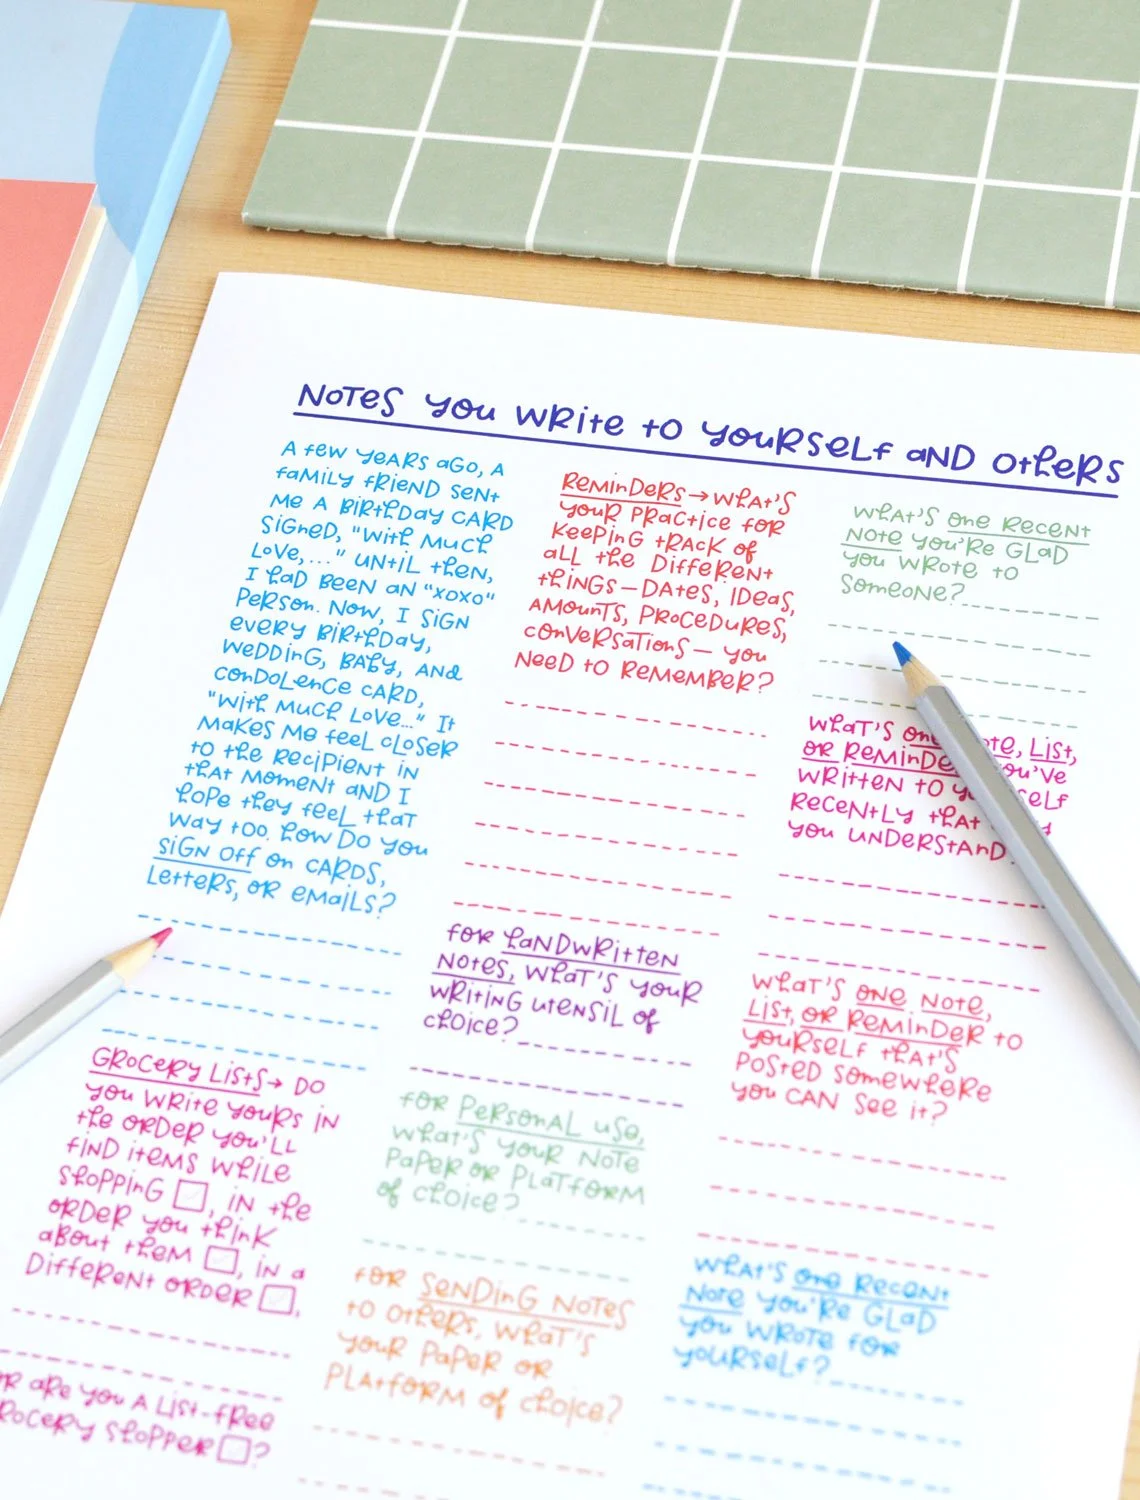 Notes you write to yourself and others
A few years ago, a
family friend sent
me a birthday card
signed, "with much
love,..." Until then,
I had been an "xoxo"
person. Now, I sign
every birthday,
wedding, baby, and
condolence card,
"with much love..." It
makes me feel closer
to the recipient in
that moment and I
hope they feel that
way too. How do you
sign off on cards,
letters, or emails?
Grocery lists→ Do
you write yours in
the order you'll
find items while
shopping ☐, in the
order you think
about them ☐, in a
different order ☐,
or are you a list-free
grocery shopper ☐?
Reminders→what's
your practice for
keeping track of
all the different
things—dates, ideas,
amounts, procedures,
conversations—you
need to remember?
For handwritten
notes, what's your
writing utensil of
choice?
For personal use,
what's your note
paper or platform
of choice?
For sending notes
to others, what's
your paper or
platform of choice?
What's one recent
note you're glad
you wrote to
someone?
What's one note, list,
or reminder you've
written to yourself
recently that
you understand
What's one note,
list, or reminder to
yourself that's
posted somewhere
you can see it?
What's one recent
note you're glad
you wrote for
yourself?